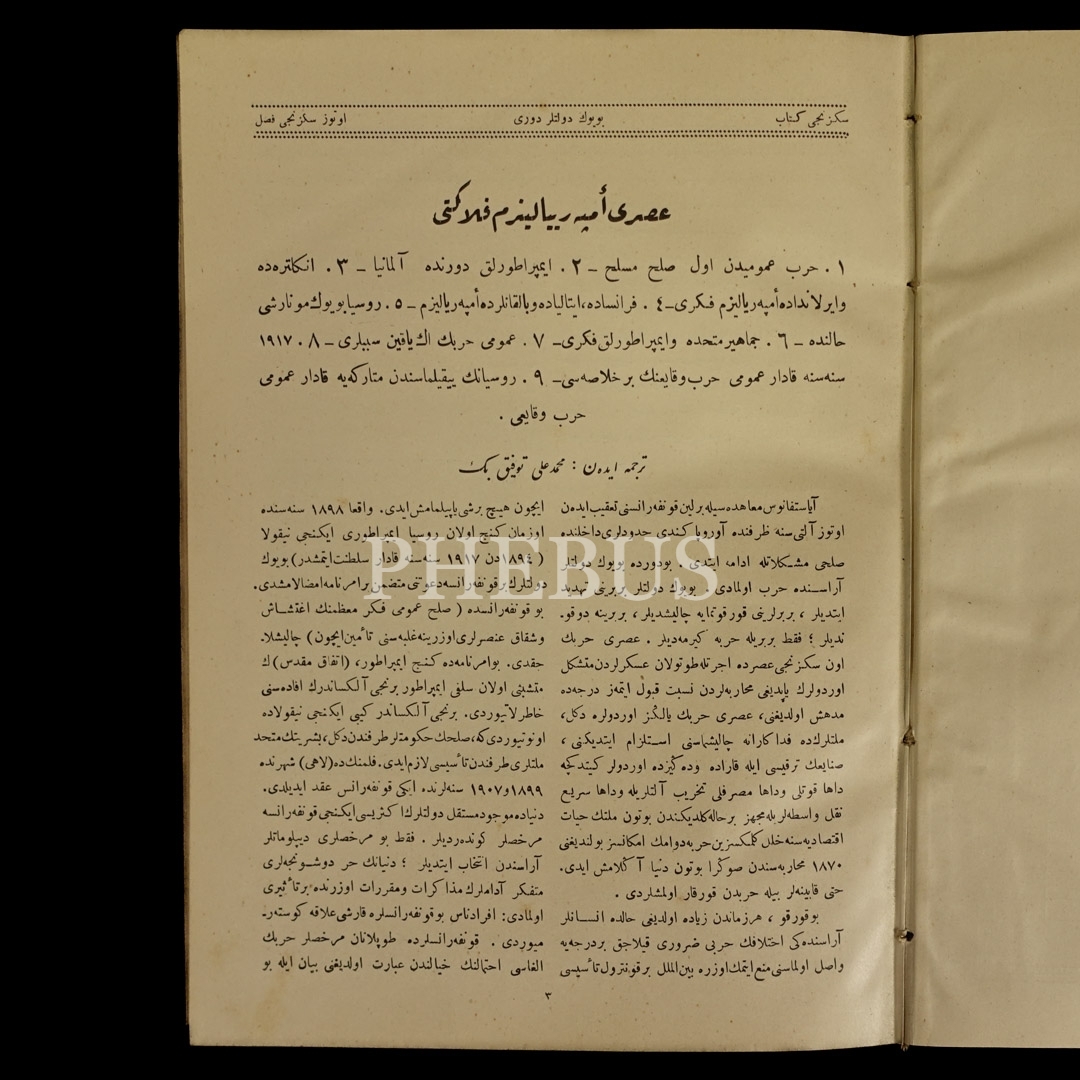 سكزنجی كتاب
بویوك دولتلر دوری
اوتوز سكزنجی فصل
عصری أمپه ریالیزم فلاكتی
۱ . حرب عمومیدن اول صلح مسلح ـ ۲ . ایمپراطورلق دورنده آلمانیا ـ ۳ . انكلتره‌ده
وایرلانداده أمپه ریالیزم فكری ـ ٤ . فرانساده، ایتالیاده و بالقانلرده أمپه ریالیزم ـ ٥ . روسیا بویوك مونارشی
حالنده ـ ٦ . جماهیر متحده وایمپراطورلق فكری ـ ۷ . عمومی حربك اك یاقین سببلری ـ ۸ . ۱۹۱۷
سنه‌سنه قادار عمومی حرب وقایعنك بر خلاصه‌سی ـ ۹ . روسیانك ییقیلماسندن متاركه‌یه قادار عمومی
حرب وقایعی .
ترجمه ایده‌ن : محمد علی توفیق بك
آیاستفانوس معاهده‌سیله برلین قونفه‌رانسنی تعقیب ایده‌ن
اوتوز آلتی سنه ظرفنده آوروپا كندی حدودلری داخلنده
صلحی مشكلاتله ادامه ایتدی . بودورده بویوك دولتلر
آراسنده حرب اولمادی . بویوك دولتلر بربرینی تهدید
ایتدیلر ، بربرلرینی قورقوتمایه چالیشدیلر ، بربرینه دوقو۔
ندیلر ؛ فقط بربریله حربه گیرمه‌دیلر . عصری حربك
اون سكزنجی عصرده اجرتله طوتولان عسكرلردن متشكل
اوردولرك یاپدیغی محاربه‌لردن نسبت قبول ایتمه‌ز درجه‌ده
مدهش اولدیغنی، عصری حربك یالكز اوردولره دكل،
ملتلرك‌ده فداكارانه چالیشماسنی استلزام ایتدیكنی ،
صنایعك ترقیسی ایله قاراده وده‌كزده اوردولر كیتدكجه
داها قوتلی وداها مصرفلی تخریب آلتلریله وداها سریع
نقل واسطه‌لریله مجهز بر حاله كلدیكندن بوتون ملتك حیات
اقتصادیه‌سنه خلل كلمكسزین حربه دوامك امكانسز بولندیغنی
۱۸۷۰ محاربه‌سندن صوكرا بوتون دنیا آكلامش ایدی.
حتی قابینه‌لر بیله حربدن قورقار اولمشلردی .
بوقورقو ، هرزماندن زیاده اولدیغی حالده انسانلر
آراسنده‌كی اختلافك حربی ضروری قیلاجق بردرجه‌یه
واصل اولماسنی منع ایتمك اوزره بین‌الملل بر قونترول تأسیسی
ایچون هیچ برشی یاپیلمامش ایدی. واقعا ۱۸۹۸ سنه‌سنده
اوزمان كنج اولان روسیا ایمپراطوری ایكنجی نیقولا
(۱۸۹٤ دن ۱۹۱۷ سنه‌سنه قادار سلطنت ایتمشدر) بویوك
دولتلرك برقونفه‌رانسه دعوتنی متضمن برامرنامه امضالامشدی.
بو قونفه‌رانسده ( صلح عمومی فكر معظمنك اغتشاش
وشقاق عنصرلری اوزرینه غلبه‌سنی تأمین ایچون) چالیشلا۔
جقدی. بوامرنامه‌ده كنج ایمپراطور، (اتفاق مقدس) ك
متشبثی اولان سلفی ایمپراطور برنجی آلكساندرك افاده‌سنی
خاطرلاتیوردی. برنجی آلكساندر كیبی ایكنجی نیقولاده
اونوتیوردی كه، صلحك حكومتلر طرفندن دكل، بشریتك متحد
ملتلری طرفندن تأسیسی لازم ایدی. فلمنك‌ده (لاهی) شهرنده
۱۸۹۹ و ۱۹۰۷ سنه‌لرنده ایكی قونفه‌رانس عقد ایدیلدی.
دنیاده موجود مستقل دولتلرك اكثریسی ایكنجی قونفه‌رانسه
مرخصلر كونده‌ردیلر . فقط بو مرخصلری دیپلوماتلر
آراسندن انتخاب ایتدیلر ؛ دنیانك حر دوشونجه‌لری
متفكر آداملرك مذاكرات ومقررات اوزرنده بر تأثیری
اولمادی: افرادناس بو قونفه‌رانسلره قارشی علاقه كوسته‌ر۔
میوردی . قونفه‌رانسلرده طوپلانان مرخصلر حربك
الغاسی احتمالنك خیالدن عبارت اولدیغنی بیان ایله بو
۳
PHEBUS